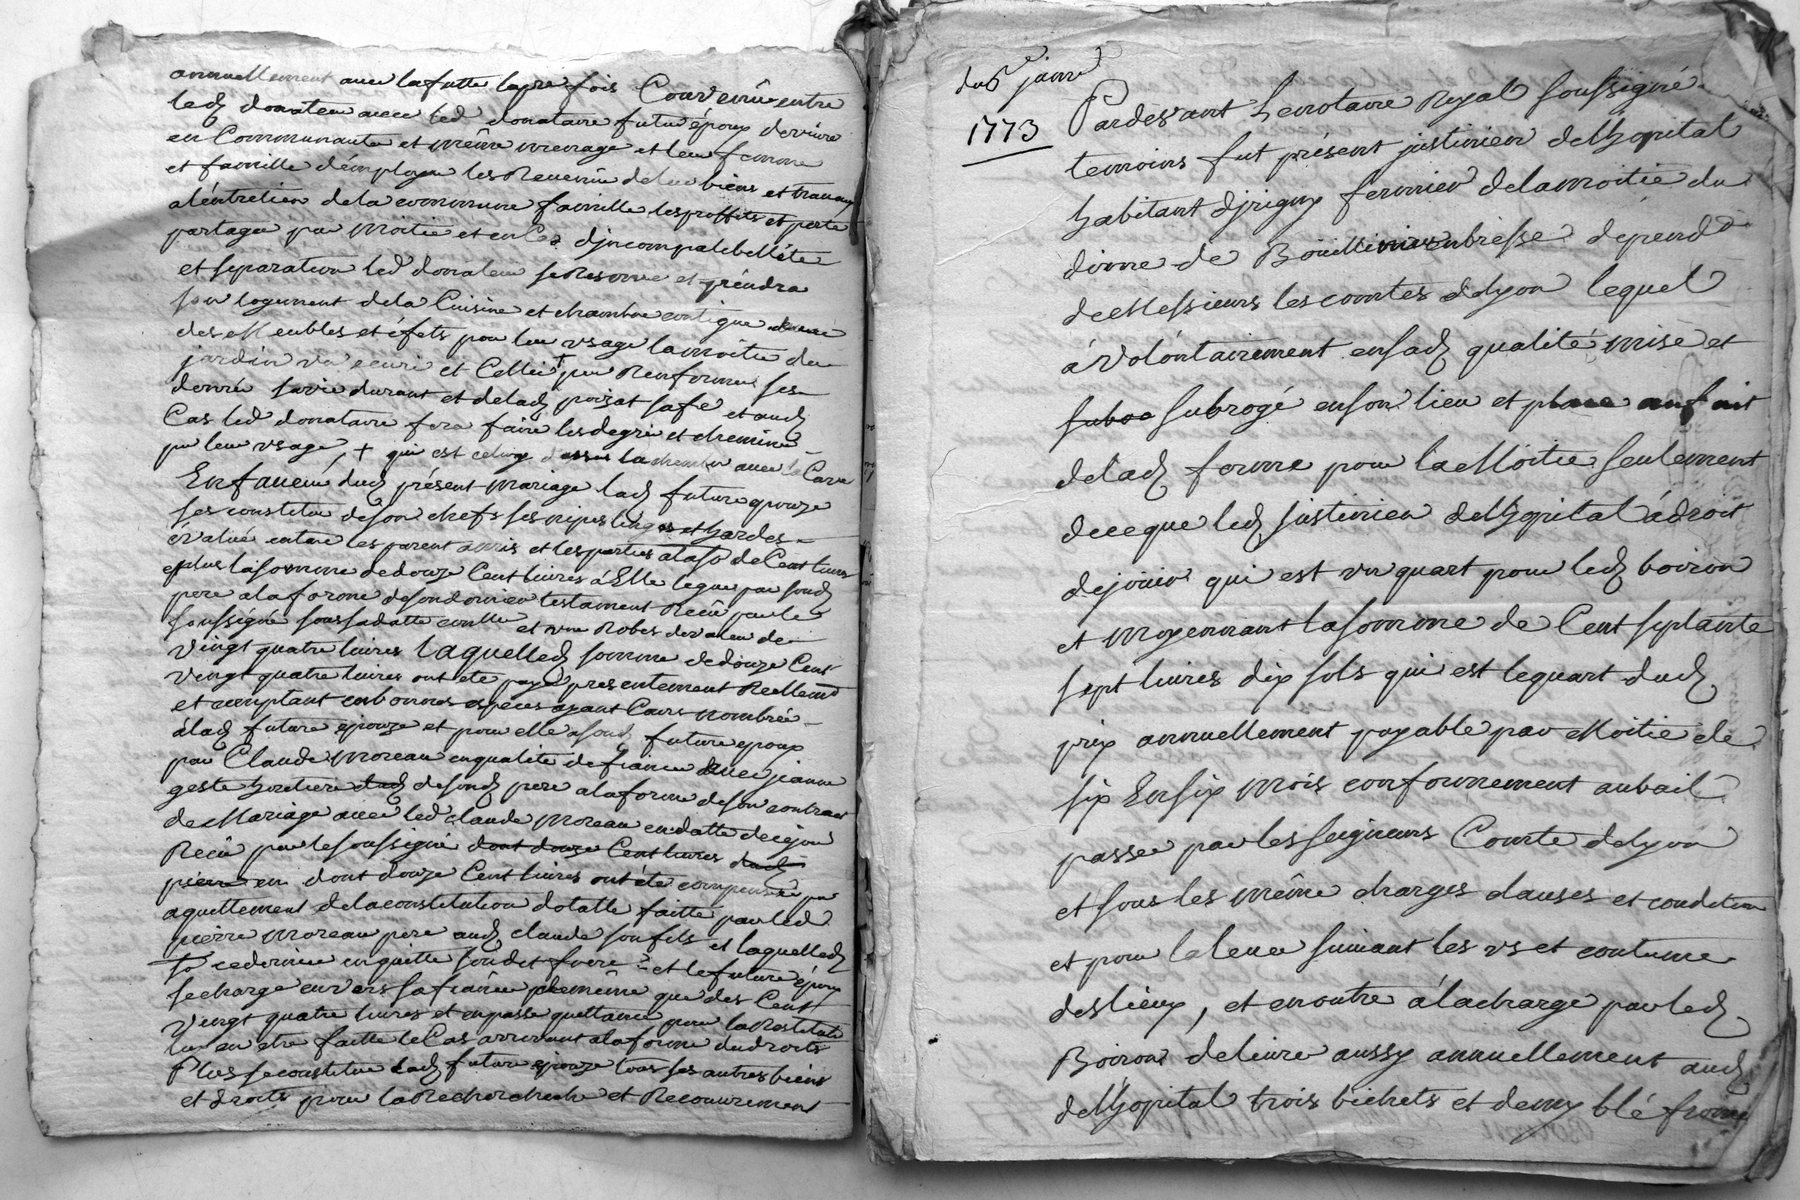 annuellement avec la futte la pre fois Convenu entre
led donateur avec led donataire futur époux de vivre
en Communauté et même menage et leur femme
et famille d'employer les Revenu de leur biens et travaux
a lentretien de la commune famille les proffits et perte
partager par moitié et en Cas djncompatebellité
et separation led donateur se Reserve et prendra
son logement de la Cuisine et chambre contigue
des Meubles et éfets pour leur usage la moitié du
jardin un ecuri et Cellier + pour Renfermer ses
denré sa vie durant et de lad et aud
Cas led donataire fera faire les degré et cheminé
pr leur usage, + qui est celuy dessus la chambre avec la Cave
En faveur dud présent mariage lad future epouze
ses constitue de son chefs ses nipes linges et hardes
évalué entre les parent amis et les parties a la so de Cent livres
et plus la somme de douze Cent livres à Elle legué par son d
pere a la forme de son dernier testament Recu par le
soussigné sous sa datte et une Robes de valeur de
vingt quatre livres laquelled somme de douze Cent
vingt quatre livres ont été payé presentement Reellemt
et comptant en bonnes especes ayant Cours nombrée
a lad future epouze et pour elle a sond future epoux
par Claude Moreau en qualite de fiancé avec jeanne
geste heritiere de sond pere a la forme de son contract
de Mariage avec led Claude Moreau en datte de ce jour
Recu par le soussigné dont douze Cent livres dud
pierre en dont douze Cent livres ont été compensé par
aquittement de la constitution dotalle faitte par led
pierre moreau pere aud claude son fils et laquelled
so ce dernier en quitte sondt frere et le future époux
se charge envers sa fiancée de même que des Cent
vingt quatre livres et en passe quittance pour la Restitution
leur en etre faitte le Cas arrivant a la forme du droits
Plus se constitue lad future epouze tous ses autres biens
et droits pour la Recherche et Recouvrement
du 6e janvr
1773
Pardevant Le notaire Royal soussigné
temoins fut présent justinien delhopital
habitant djrigny fermier de la moitié du
dixme de Boüillieu en bresse dependt
de Messieurs les comtes de lyon lequel
à volontairement en sad qualité mis et
suboo subrogé en son lieu et place au fait
de lad ferme pour la Moitié seulement
de ce que led justinien delhopital à droit
de joüir qui est un quart pour led boiron
et moyennant la somme de Cent septante
sept livres dix sols qui est le quart dud
prix annuellement payable par Moitié de
six En six mois conformement au bail
passer par les seigneurs Comte de lyon
et sous les même charges clauses et condition
et pour la levee suivant les us et coutume
des lieux, et en outre à la charge par led
Boiron de livrer aussy annuellement aud
delhopital trois bichets et demy blé froment